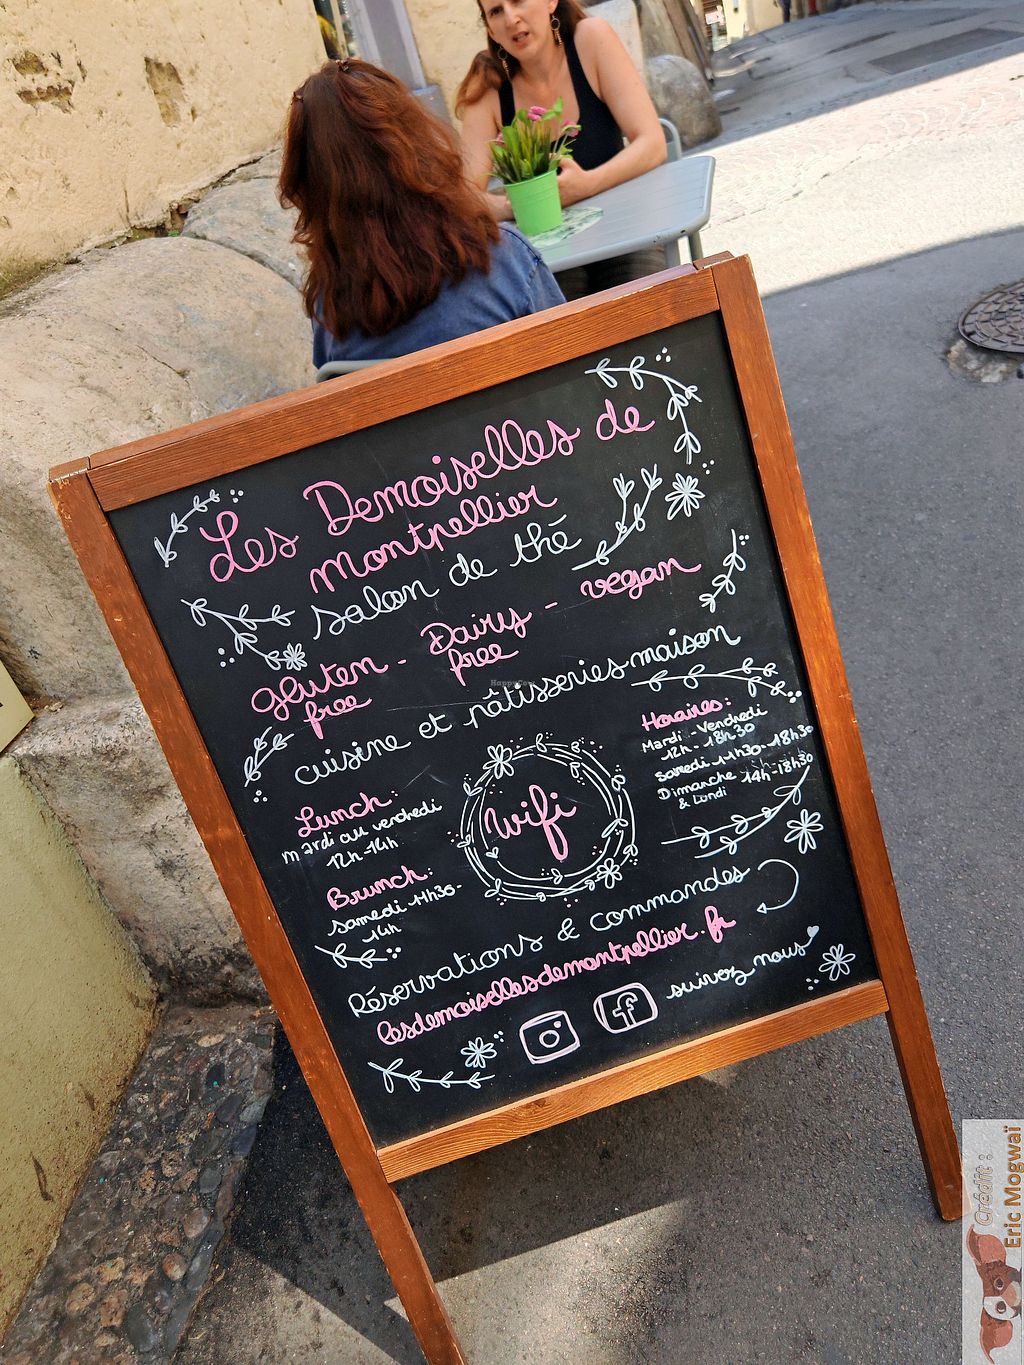 Les Demoiselles de
Montpellier
salon de thé
gluten free - Dairy free - vegan
cuisine et pâtisseries maison
Lunch :
mardi au vendredi
12h-14h
Brunch :
samedi 11h30-
14h
wifi
Horaires :
Mardi - Vendredi
12h - 18h30
Samedi 11h30-18h30
Dimanche 14h-18h30
& Lundi
Réservations & commandes
lesdemoisellesdemontpellier.fr
suivez nous
HappyCow
Crédit :
Eric Mogwaï